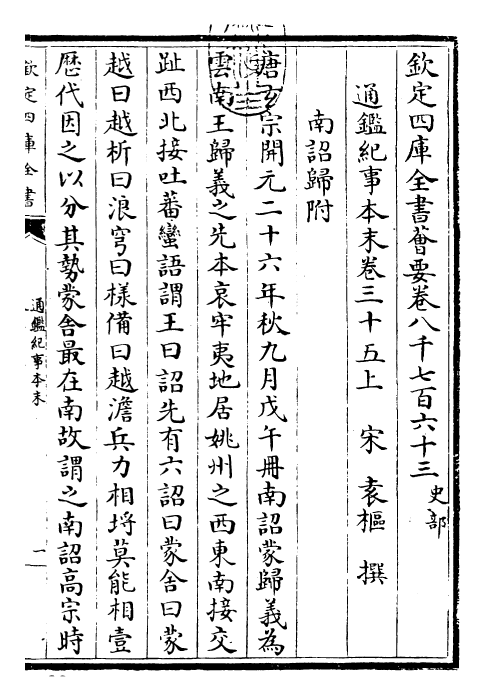 欽定四庫全書薈要卷八千七百六十三 史部
通鑑紀事本末卷三十五上 宋 袁樞 撰
南詔歸附
唐玄宗開元二十六年秋九月戊午冊南詔蒙歸義為
雲南王歸義之先本哀牢夷地居姚州之西東南接交
趾西北接吐蕃蠻語謂王曰詔先有六詔曰蒙舍曰蒙
越曰越析曰浪穹曰樣備曰越澹兵力相埒莫能相壹
歷代因之以分其勢蒙舍最在南故謂之南詔高宗時
欽定四庫全書
通鑑紀事本末
一